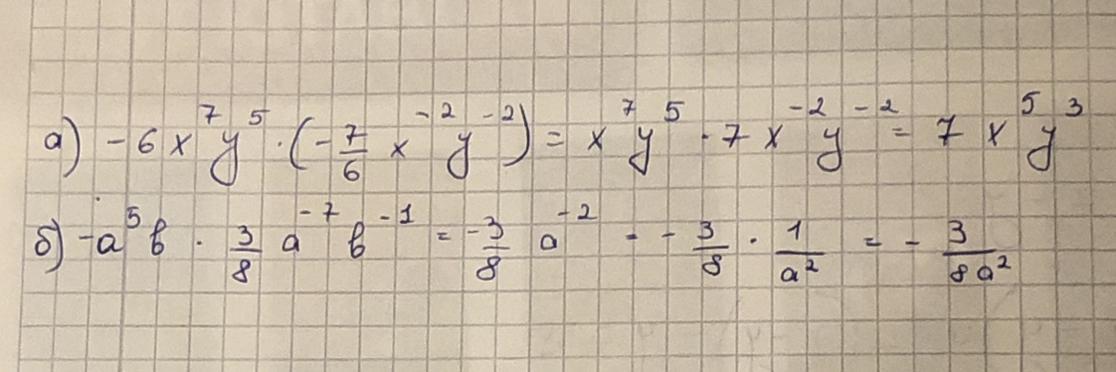 а) -6x⁷y⁵ · (-7/6 x⁻²y⁻²) = x⁷y⁵ · 7x⁻²y⁻² = 7x⁵y³
б) -a⁵b · 3/8 a⁻⁷b⁻¹ = -3/8 a⁻² = -3/8 · 1/a² = -3/8a²